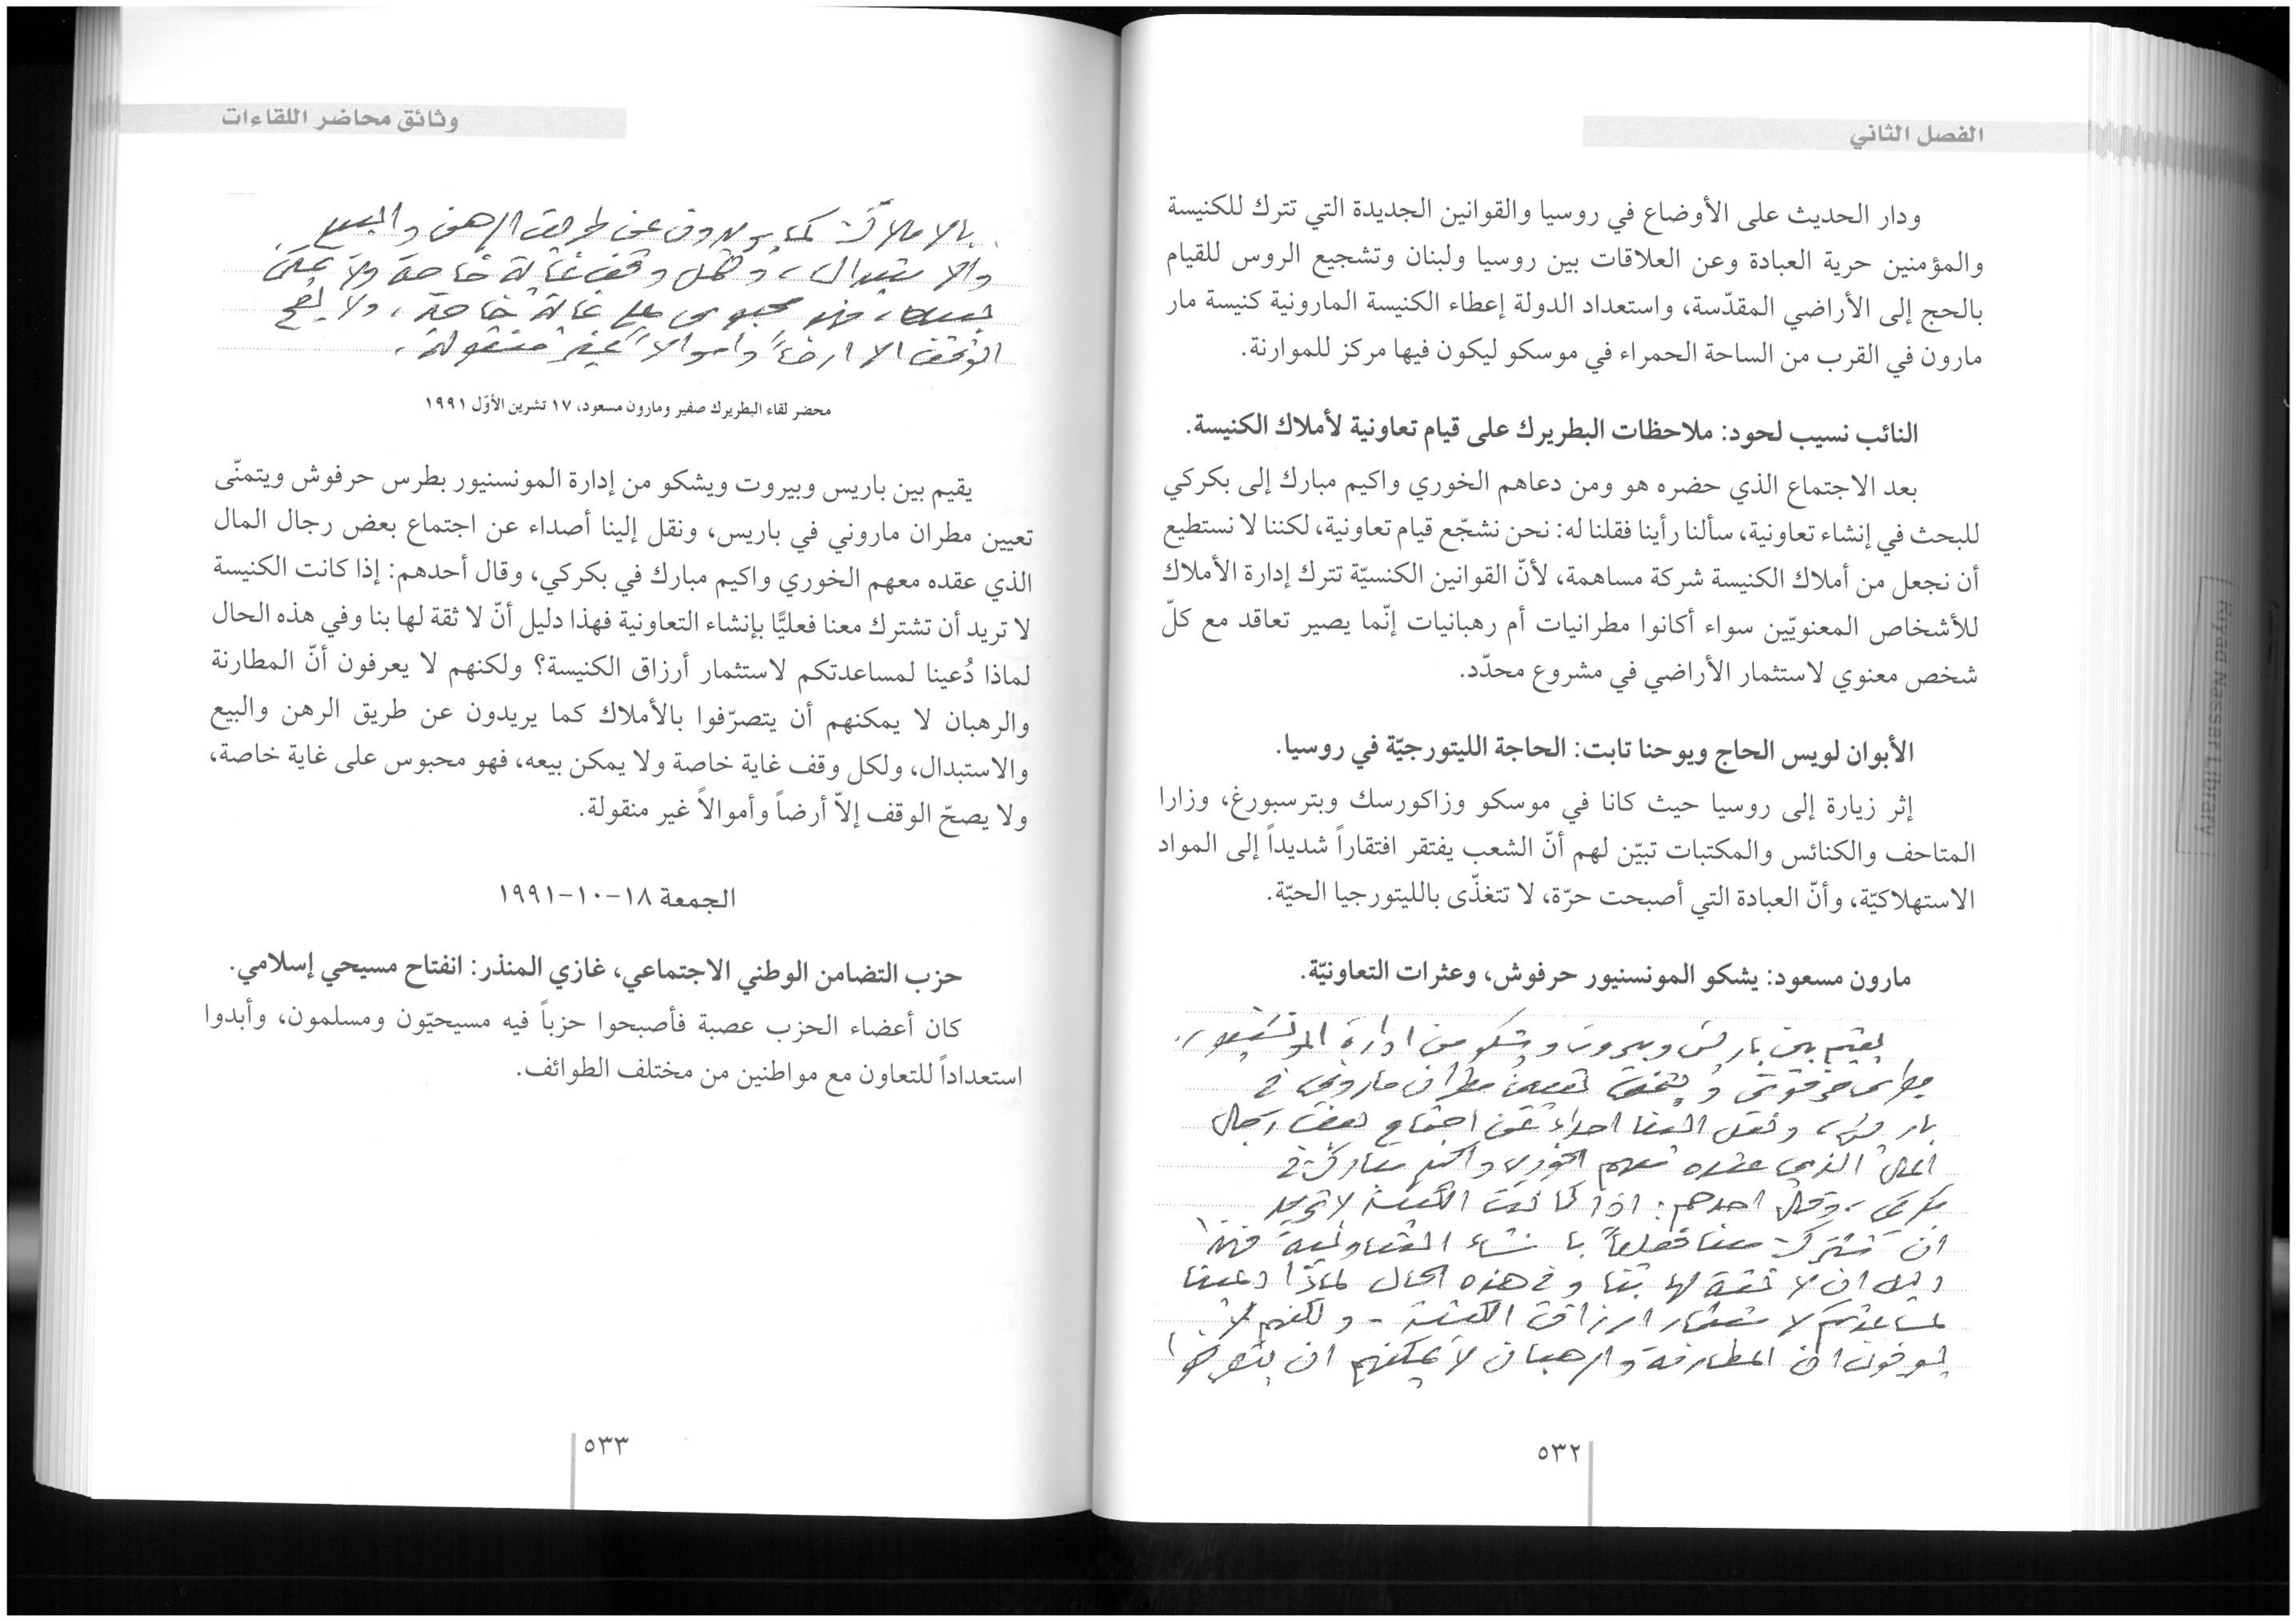 الفصل الثاني
ودار الحديث على الأوضاع في روسيا والقوانين الجديدة التي تترك للكنيسة
والمؤمنين حرية العبادة وعن العلاقات بين روسيا ولبنان وتشجيع الروس للقيام
بالحج إلى الأراضي المقدّسة، واستعداد الدولة إعطاء الكنيسة المارونية كنيسة مار
مارون في القرب من الساحة الحمراء في موسكو ليكون فيها مركز للموارنة.
النائب نسيب لحود: ملاحظات البطريرك على قيام تعاونية لأملاك الكنيسة.
بعد الاجتماع الذي حضره هو ومن دعاهم الخوري واكيم مبارك إلى بكركي
للبحث في إنشاء تعاونية، سألنا رأينا فقلنا له: نحن نشجّع قيام تعاونية، لكننا لا نستطيع
أن نجعل من أملاك الكنيسة شركة مساهمة، لأنّ القوانين الكنسيّة تترك إدارة الأملاك
للأشخاص المعنويّين سواء أكانوا مطرانيات أم رهبانيات إنّما يصير تعاقد مع كلّ
شخص معنوي لاستثمار الأراضي في مشروع محدّد.
الأبوان لويس الحاج ويوحنا تابت: الحاجة الليتورجيّة في روسيا.
إثر زيارة إلى روسيا حيث كانا في موسكو وزاكورسك وبترسبورغ، وزارا
المتاحف والكنائس والمكتبات تبيّن لهم أنّ الشعب يفتقر افتقاراً شديداً إلى المواد
الاستهلاكيّة، وأنّ العبادة التي أصبحت حرّة، لا تتغذّى بالليتورجيا الحيّة.
مارون مسعود: يشكو المونسنيور حرفوش، وعثرات التعاونيّة.
يقيم بين باريس وبيروت ويشكو من ادارة المونسنيور
بطرس حرفوش ويتمنى تعيين مطران ماروني في
باريس، ونقل الينا اصداء عن اجتماع بعض رجال
المال الذي عقده معهم الخوري واكيم مبارك في
بكركي، وقال احدهم: اذا كانت الكنيسة لا تريد
ان تشترك معنا فعلياً بانشاء التعاونية فهذا
دليل ان لا ثقة لها بنا وفي هذه الحال لماذا دعينا
لمساعدتكم لاستثمار ارزاق الكنيسة - ولكنهم لا
يعرفون ان المطارنة والرهبان لا يمكنهم ان يتصرفوا
٥٣٢
وثائق محاضر اللقاءات
بالاملاك كما يريدون عن طريق الرهن والبيع
والاستبدال، ولكل وقف غاية خاصة ولا يمكن
بيعه، فهو محبوس على غاية خاصة، ولا يصح
الوقف الا ارضاً واموالاً غير منقولة.
محضر لقاء البطريرك صفير ومارون مسعود، ١٧ تشرين الأوّل ١٩٩١
يقيم بين باريس وبيروت ويشكو من إدارة المونسنيور بطرس حرفوش ويتمنّى
تعيين مطران ماروني في باريس، ونقل إلينا أصداء عن اجتماع بعض رجال المال
الذي عقده معهم الخوري واكيم مبارك في بكركي، وقال أحدهم: إذا كانت الكنيسة
لا تريد أن تشترك معنا فعليًّا بإنشاء التعاونية فهذا دليل أنّ لا ثقة لها بنا وفي هذه الحال
لماذا دُعينا لمساعدتكم لاستثمار أرزاق الكنيسة؟ ولكنهم لا يعرفون أنّ المطارنة
والرهبان لا يمكنهم أن يتصرّفوا بالأملاك كما يريدون عن طريق الرهن والبيع
والاستبدال، ولكل وقف غاية خاصة ولا يمكن بيعه، فهو محبوس على غاية خاصة،
ولا يصحّ الوقف إلاّ أرضاً وأموالاً غير منقولة.
الجمعة ١٨-١٠-١٩٩١
حزب التضامن الوطني الاجتماعي، غازي المنذر: انفتاح مسيحي إسلامي.
كان أعضاء الحزب عصبة فأصبحوا حزباً فيه مسيحيّون ومسلمون، وأبدوا
استعداداً للتعاون مع مواطنين من مختلف الطوائف.
٥٣٣
Riyad Nassar Library